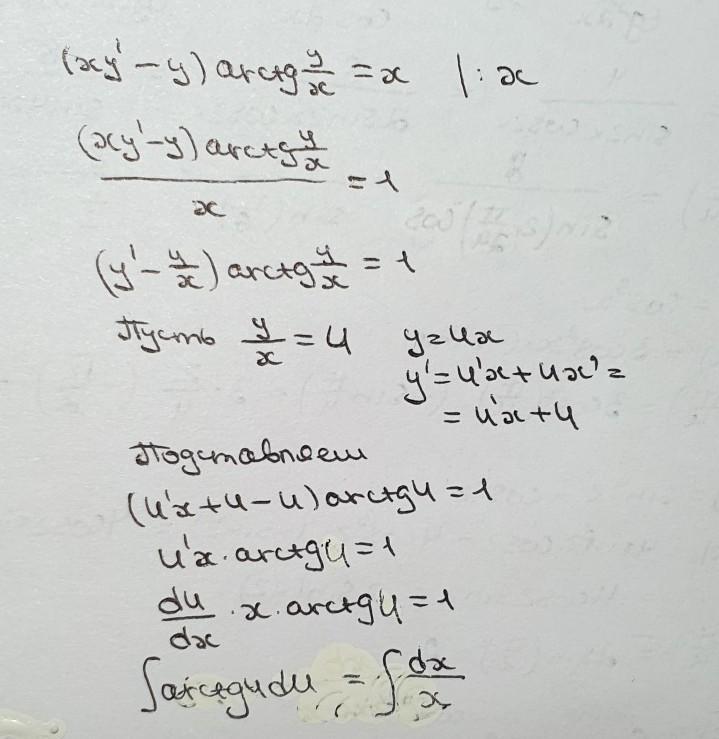 (xy' - y) arctg y/x = x | : x
(xy' - y) arctg y/x / x = 1
(y' - y/x) arctg y/x = 1
Пусть y/x = u y = ux
y' = u'x + ux' =
= u'x + u
Подставляем
(u'x + u - u) arctg u = 1
u'x · arctg u = 1
du/dx · x · arctg u = 1
∫ arctg u du = ∫ dx/x